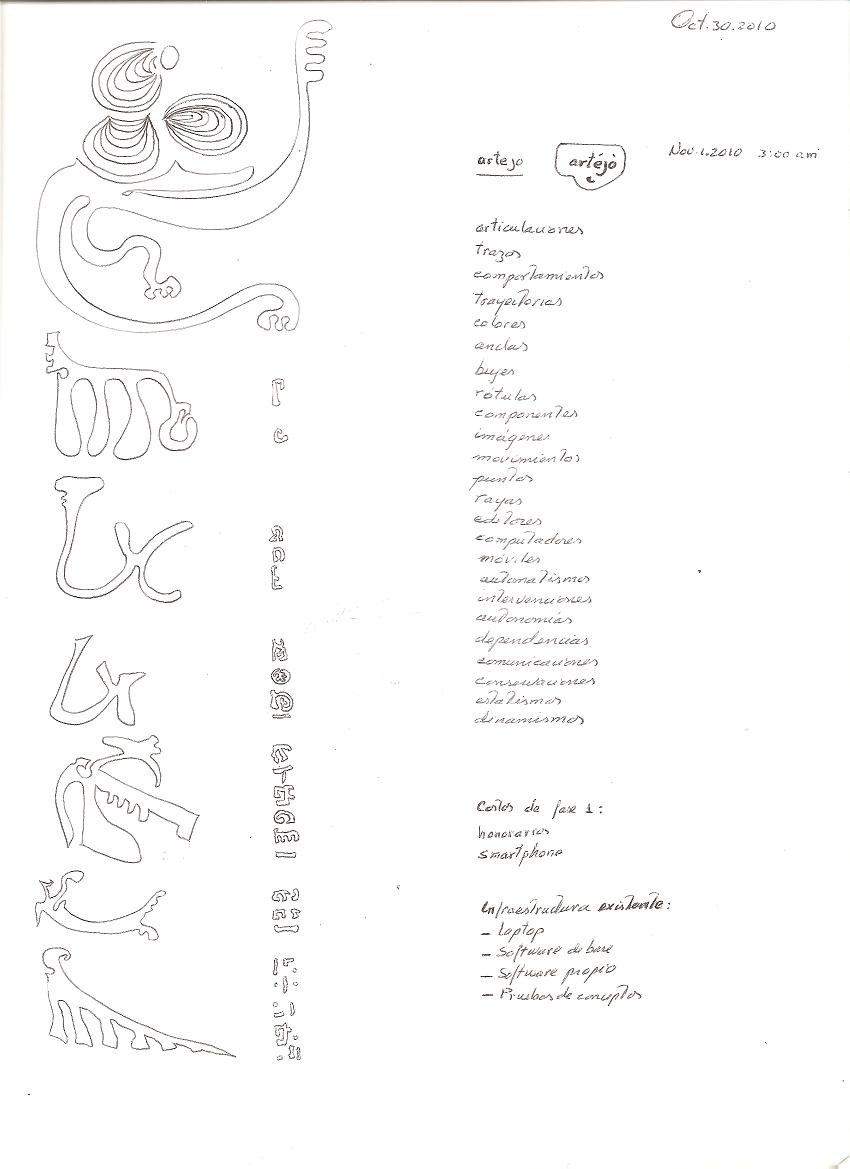 Oct. 30. 2010
artejo
artéjò
Nov. 1. 2010 3:00 am
articulaciones
trazos
comportamientos
trayectorias
colores
anclas
bujes
rótulas
componentes
imágenes
movimientos
puntos
rayas
editores
computadores
móviles
automatismos
intervenciones
autonomías
dependencias
comunicaciones
conservaciones
estatismos
dinamismos
Costos de fase 1:
honorarios
smartphone
Infraestructura existente:
– Laptop
– Software de base
– Software propio
– Pruebas de conceptos